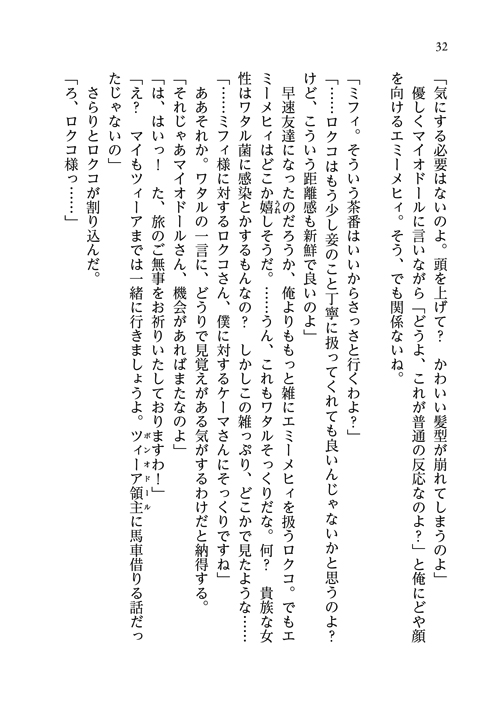 32
「気にする必要はないのよ。頭を上げて？　かわいい髪型が崩れてしまうのよ」
優しくマイオドールに言いながら「どうよ、これが普通の反応なのよ？」と俺にどや顔
を向けるエミーメヒィ。そう、でも関係ないね。
「ミフィ。そういう茶番はいいからさっさと行くわよ？」
「……ロクコはもう少し妾のこと丁寧に扱ってくれても良いんじゃないかと思うのよ？
けど、こういう距離感も新鮮で良いのよ」
早速友達になったのだろうか、俺よりももっと雑にエミーメヒィを扱うロクコ。でもエ
ミーメヒィはどこか嬉しそうだ。……うん、これもワタルそっくりだな。何？　貴族な女
性はワタル菌に感染とかするもんなの？　しかしこの雑っぷり、どこかで見たような……
「……ミフィ様に対するロクコさん、僕に対するケーマさんにそっくりですね」
ああそれか。ワタルの一言に、どうりで見覚えがある気がするわけだと納得する。
「それじゃあマイオドールさん、機会があればまたなのよ」
「は、はいっ！　た、旅のご無事をお祈りいたしておりますわ！」
「え？　マイもツィーアまでは一緒に行きましょうよ。ツィーア領主に馬車借りる話だっ
たじゃないの」
さらりとロクコが割り込んだ。
「ろ、ロクコ様っ……」
うれ
ボンオドール